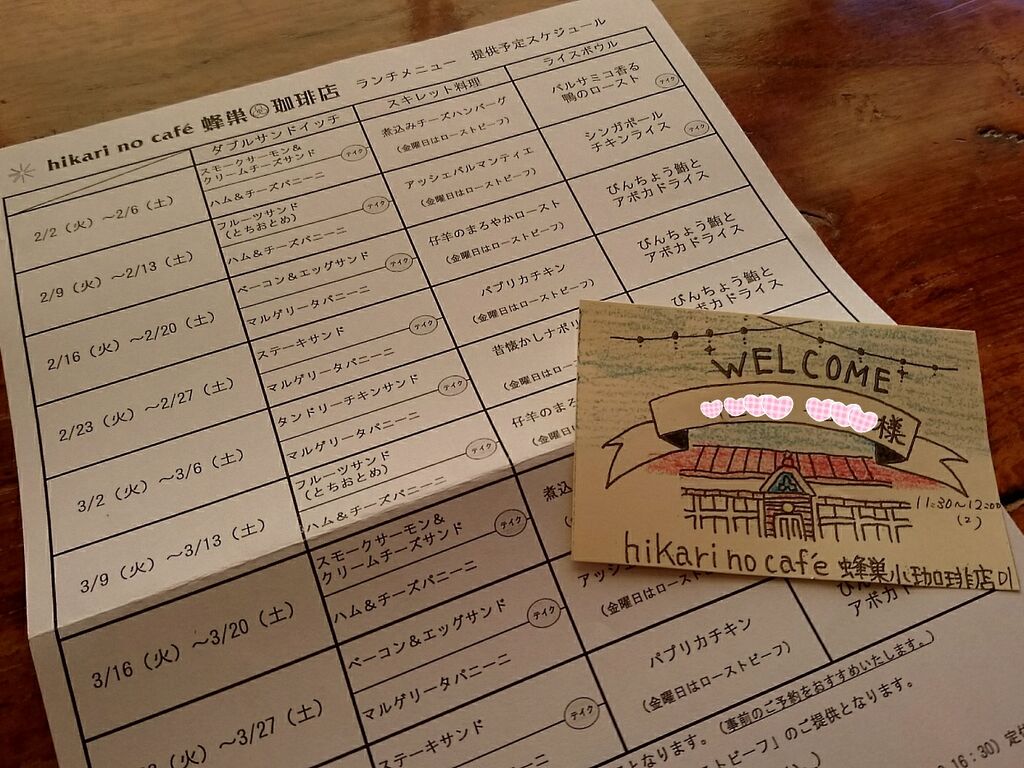 hikari no café 蜂巣 珈琲店 ランチメニュー 提供予定スケジュール
ダブルサンドイッチ
スキレット料理
ライスボウル
2/2（火）～2/6（土）
スモークサーモン＆
クリームチーズサンド
テイク
ハム＆チーズパニーニ
煮込みチーズハンバーグ
（金曜日はローストビーフ）
バルサミコ香る
鴨のロースト
テイク
2/9（火）～2/13（土）
フルーツサンド
（とちおとめ）
テイク
ハム＆チーズパニーニ
アッシェパルマンティエ
（金曜日はローストビーフ）
シンガポール
チキンライス
テイク
2/16（火）～2/20（土）
ベーコン＆エッグサンド
テイク
マルゲリータパニーニ
仔羊のまろやかロースト
（金曜日はローストビーフ）
びんちょう鮪と
アボカドライス
2/23（火）～2/27（土）
ステーキサンド
テイク
マルゲリータパニーニ
パプリカチキン
（金曜日はローストビーフ）
びんちょう鮪と
アボカドライス
3/2（火）～3/6（土）
タンドリーチキンサンド
テイク
マルゲリータパニーニ
昔懐かしナポリ
（金曜日はロースト
びんちょう鮪と
アボカドライス
3/9（火）～3/13（土）
フルーツサンド
（とちおとめ）
テイク
ハム＆チーズパニーニ
仔羊のまろ
（金曜日
3/16（火）～3/20（土）
スモークサーモン＆
クリームチーズサンド
テイク
ハム＆チーズパニーニ
煮込
（火）～3/27（土）
ベーコン＆エッグサンド
テイク
マルゲリータパニーニ
アッシ
（金曜日はロースト
アボカド
ステーキサンド
テイク
パプリカチキン
（金曜日はローストビーフ）
となります。（事前のご予約をおすすめいたします。）
ストビーフ」のご提供となります。
16：30）定
WELCOME
様
11:30～12:00
(2)
hikari no café 蜂巣小珈琲店